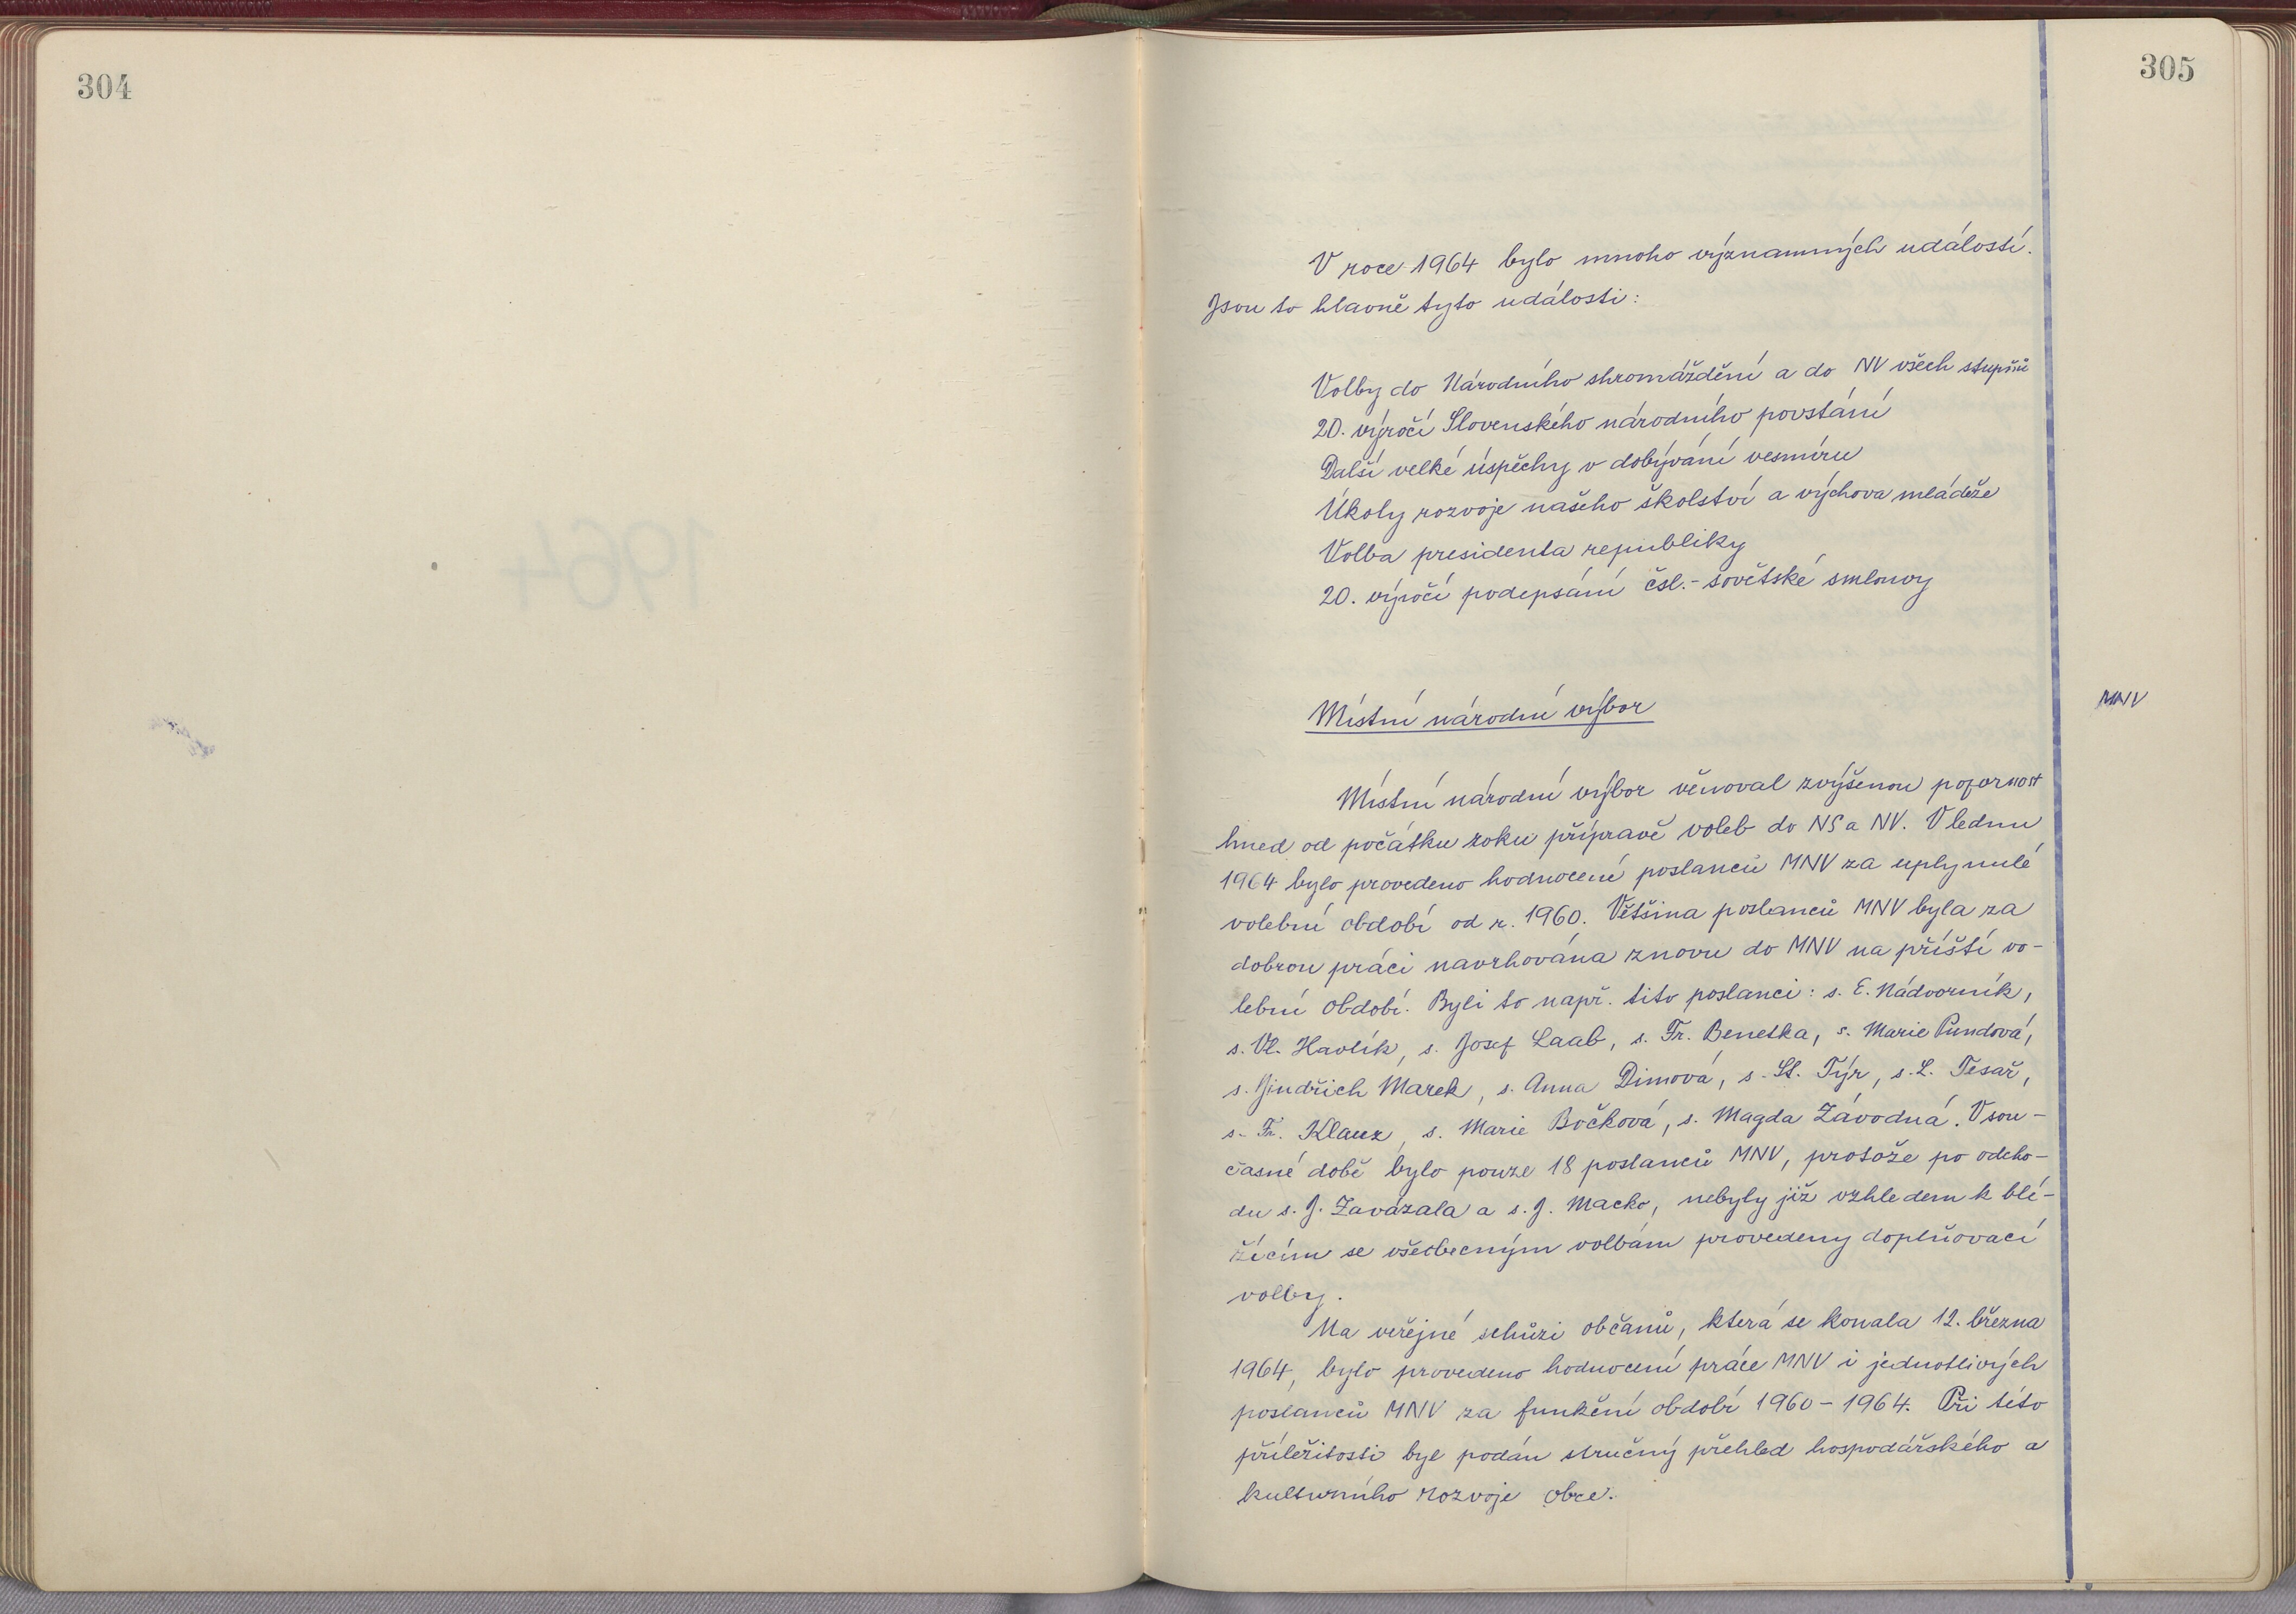 304
305
V roce 1964 bylo mnoho významných událostí.
Jsou to hlavně tyto události:
Volby do Národního shromáždění a do NV všech stupňů
20. výročí Slovenského národního povstání
Další velké úspěchy v dobývání vesmíru
Úkoly rozvoje našeho školství a výchova mládeže
Volba presidenta republiky
20. výročí podepsání čsl.-sovětské smlouvy
Místní národní výbor
MNV
Místní národní výbor věnoval zvýšenou pozornost
hned od počátku roku přípravě voleb do NS a NV. V lednu
1964 bylo provedeno hodnocení poslanců MNV za uplynulé
volební období od r. 1960. Většina poslanců MNV byla za
dobrou práci navrhována znovu do MNV na příští vo-
lební období. Byli to např. tito poslanci: s. E. Nádvorník,
s. Vl. Havlík, s. Josef Laab, s. Fr. Benetka, s. Marie Pundová,
s. Jindřich Marek, s. Anna Dimová, s. St. Týr, s. L. Tesař,
s. Fr. Klauz, s. Marie Bočková, s. Magda Závodná. V sou-
časné době bylo pouze 18 poslanců MNV, protože po odcho-
du s. J. Zavázala a s. J. Macko, nebyly již vzhledem k blí-
žícím se všeobecným volbám provedeny doplňovací
volby.
Na veřejné schůzi občanů, která se konala 12. března
1964, bylo provedeno hodnocení práce MNV i jednotlivých
poslanců MNV za funkční období 1960 - 1964. Při této
příležitosti byl podán stručný přehled hospodářského a
kulturního rozvoje obce.